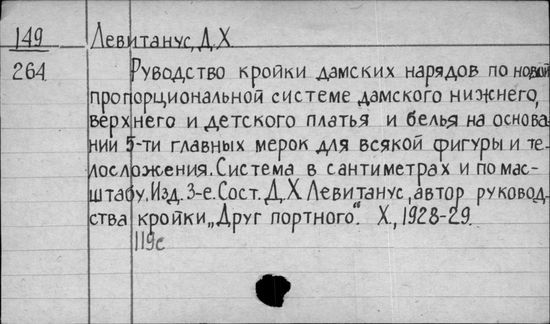 149 Левитанус, Д. Х.
264 Руводство кройки дамских нарядов по новой
пропорциональной системе дамского нижнего,
верхнего и детского платья и белья на основа-
нии 5-ти главных мерок для всякой фигуры и те-
лосложения. Система в сантиметрах и по мас-
штабу. Изд. 3-е. Сост. Д. Х. Левитанус, автор руковод-
ства кройки „Друг портного“. Х., 1928-29.
119с